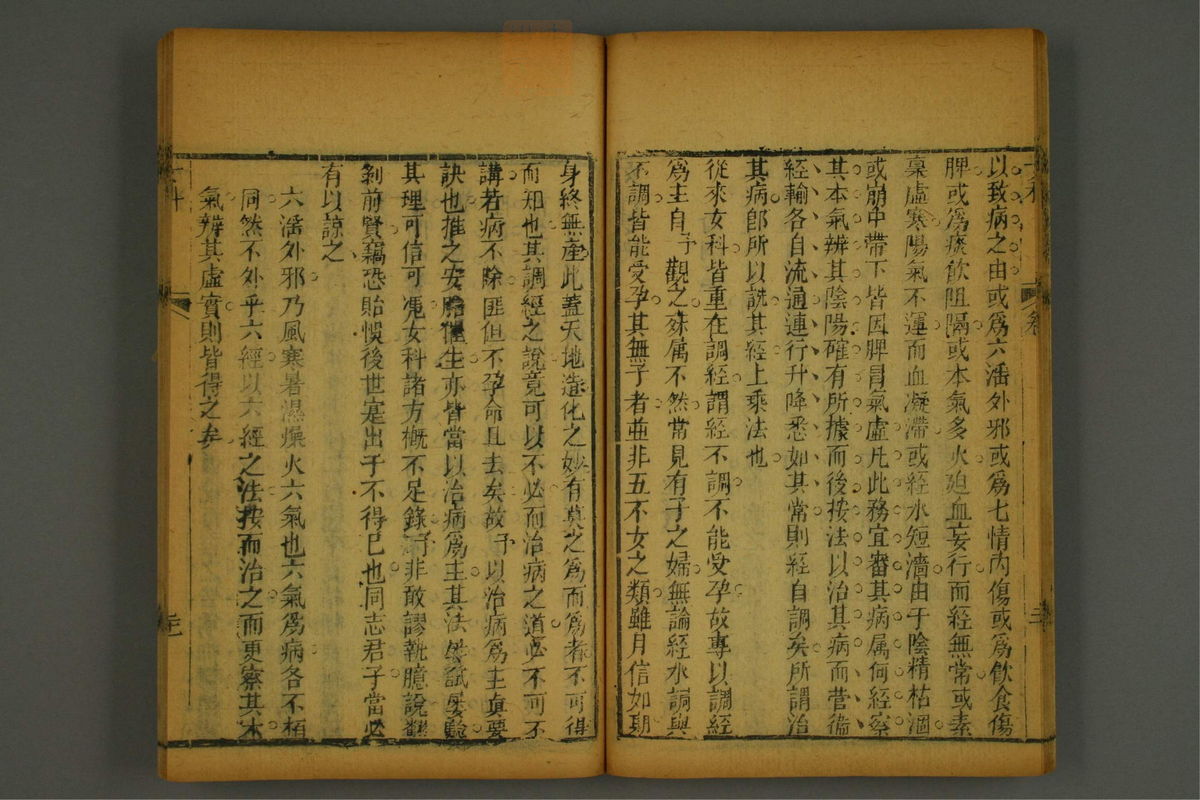 以致病之由或爲六淫外邪或爲七情内傷或爲飲食傷
脾或爲痰飲阻隔或本氣多火迫血妄行而經無常或素
稟虛寒陽氣不運而血凝滯或經水短濇由于陰精枯涸
或崩中帶下皆因脾胃氣虛凡此務宜審其病属何經察
其本氣辨其陰陽確有所據而後按法以治其病而营衞
經輸各自流通連行升降悉如其常則經自調矣所謂治
其病卽所以調其經上乘法也
從來女科皆重在調經謂經不調不能受孕故專以調經
爲主自予觀之殊属不然常見有子之婦無論經水調與
不調皆能受孕其無子者並非五不女之類雖月信如期
身終無產此蓋天地造化之妙有莫之爲而爲者不可得
而知也其調經之說竟可以不必而治病之道必不可不
講若病不除匪但不孕命且去矣故予以治病爲主真要
訣也推之安胎催生亦皆當以治病爲主其法屢試屢驗
其理可信可凴女科諸方槪不足錄予非敢謬執臆說
剝前賢竊恐貽悞後世寔出于不得已也同志君子當必
有以諒之
六淫外邪乃風寒暑濕燥火六氣也六氣爲病各不相
同然不外乎六經以六經之法按而治之而更察其本
氣辨其虛實則皆得之矣
女科
卷
三